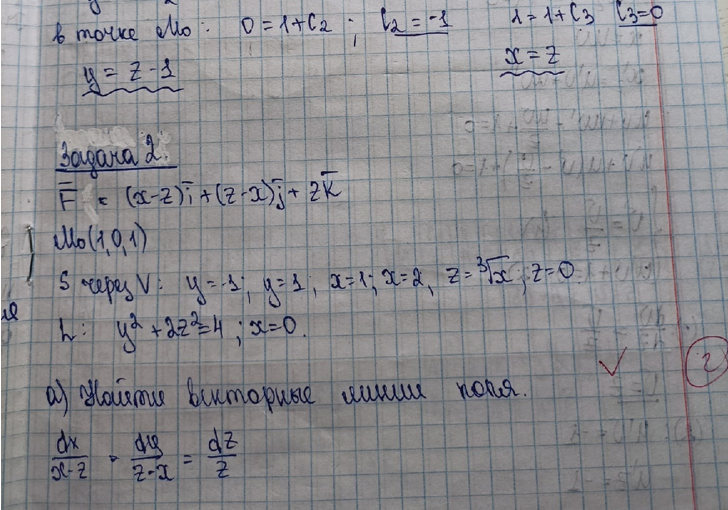 в точке М₀: 0 = 1 + C₂ ; C₂ = -1 1 = 1 + C₃ C₃ = 0
y = z - 1 x = z
Задача 2.
F̄ = (x-z)ī + (z-x)j̄ + zk̄
М₀(1,0,1)
S через V: y = -1; y = 1; x = 1; x = 2, z = ∛x; z = 0
L: y² + 2z² = 4; x = 0.
а) Найти векторные линии поля.
dx/(x-z) = dy/(z-x) = dz/z